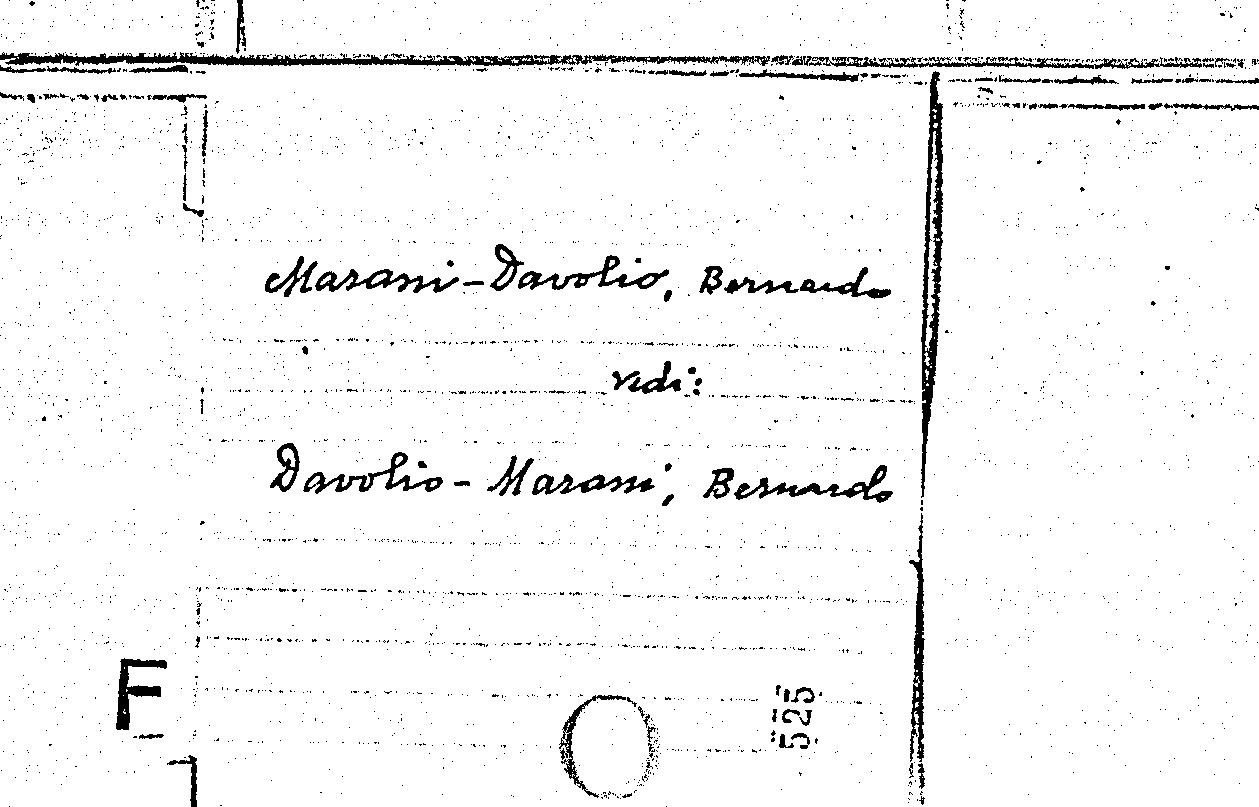 Marani-Davolio, Bernardo
vedi:
Davolio-Marani, Bernardo
F
525